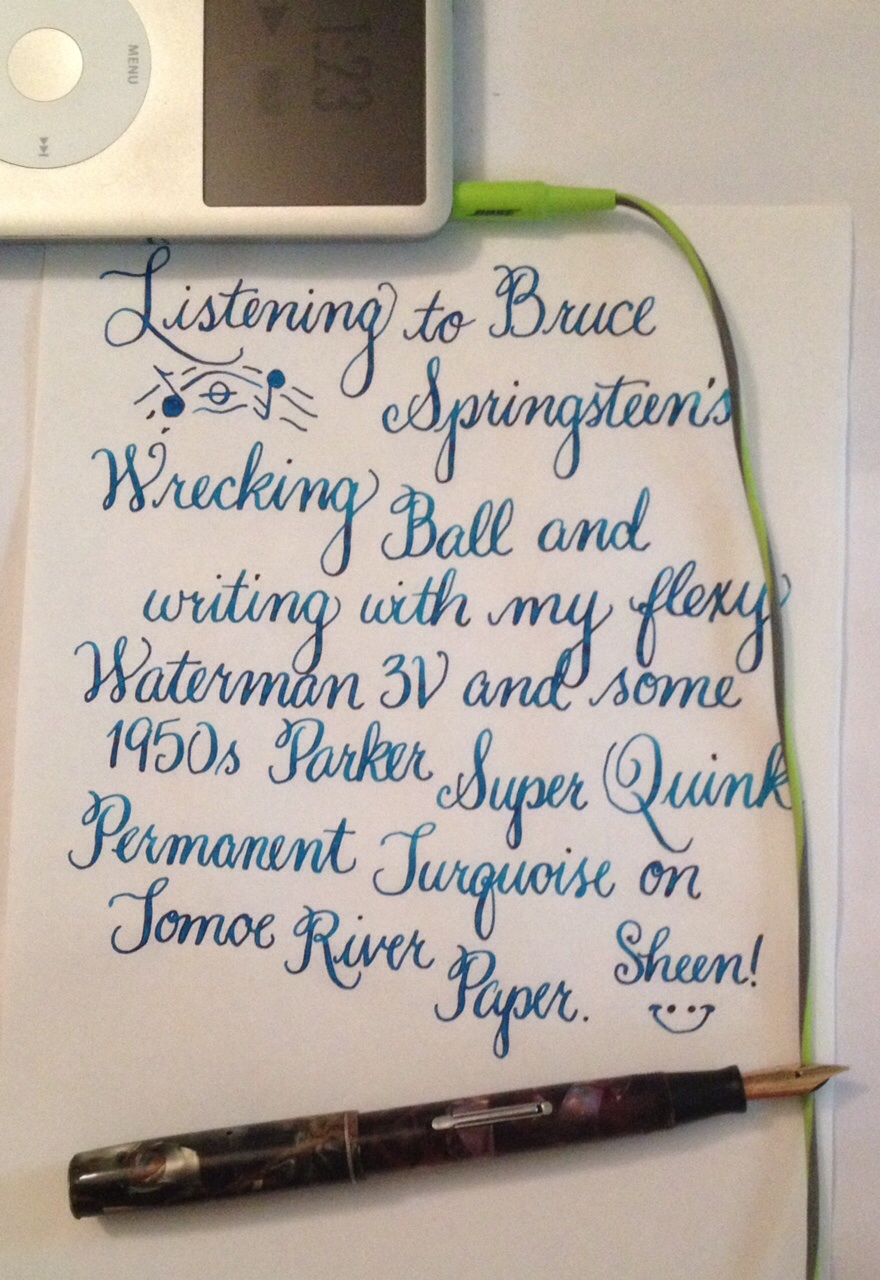 MENU
1:23
BOSE
Listening to Bruce
Springsteen's
Wrecking Ball and
writing with my flexy
Waterman 3V and some
1950s Parker Super Quink
Permanent Turquoise on
Tomoe River Paper. Sheen!